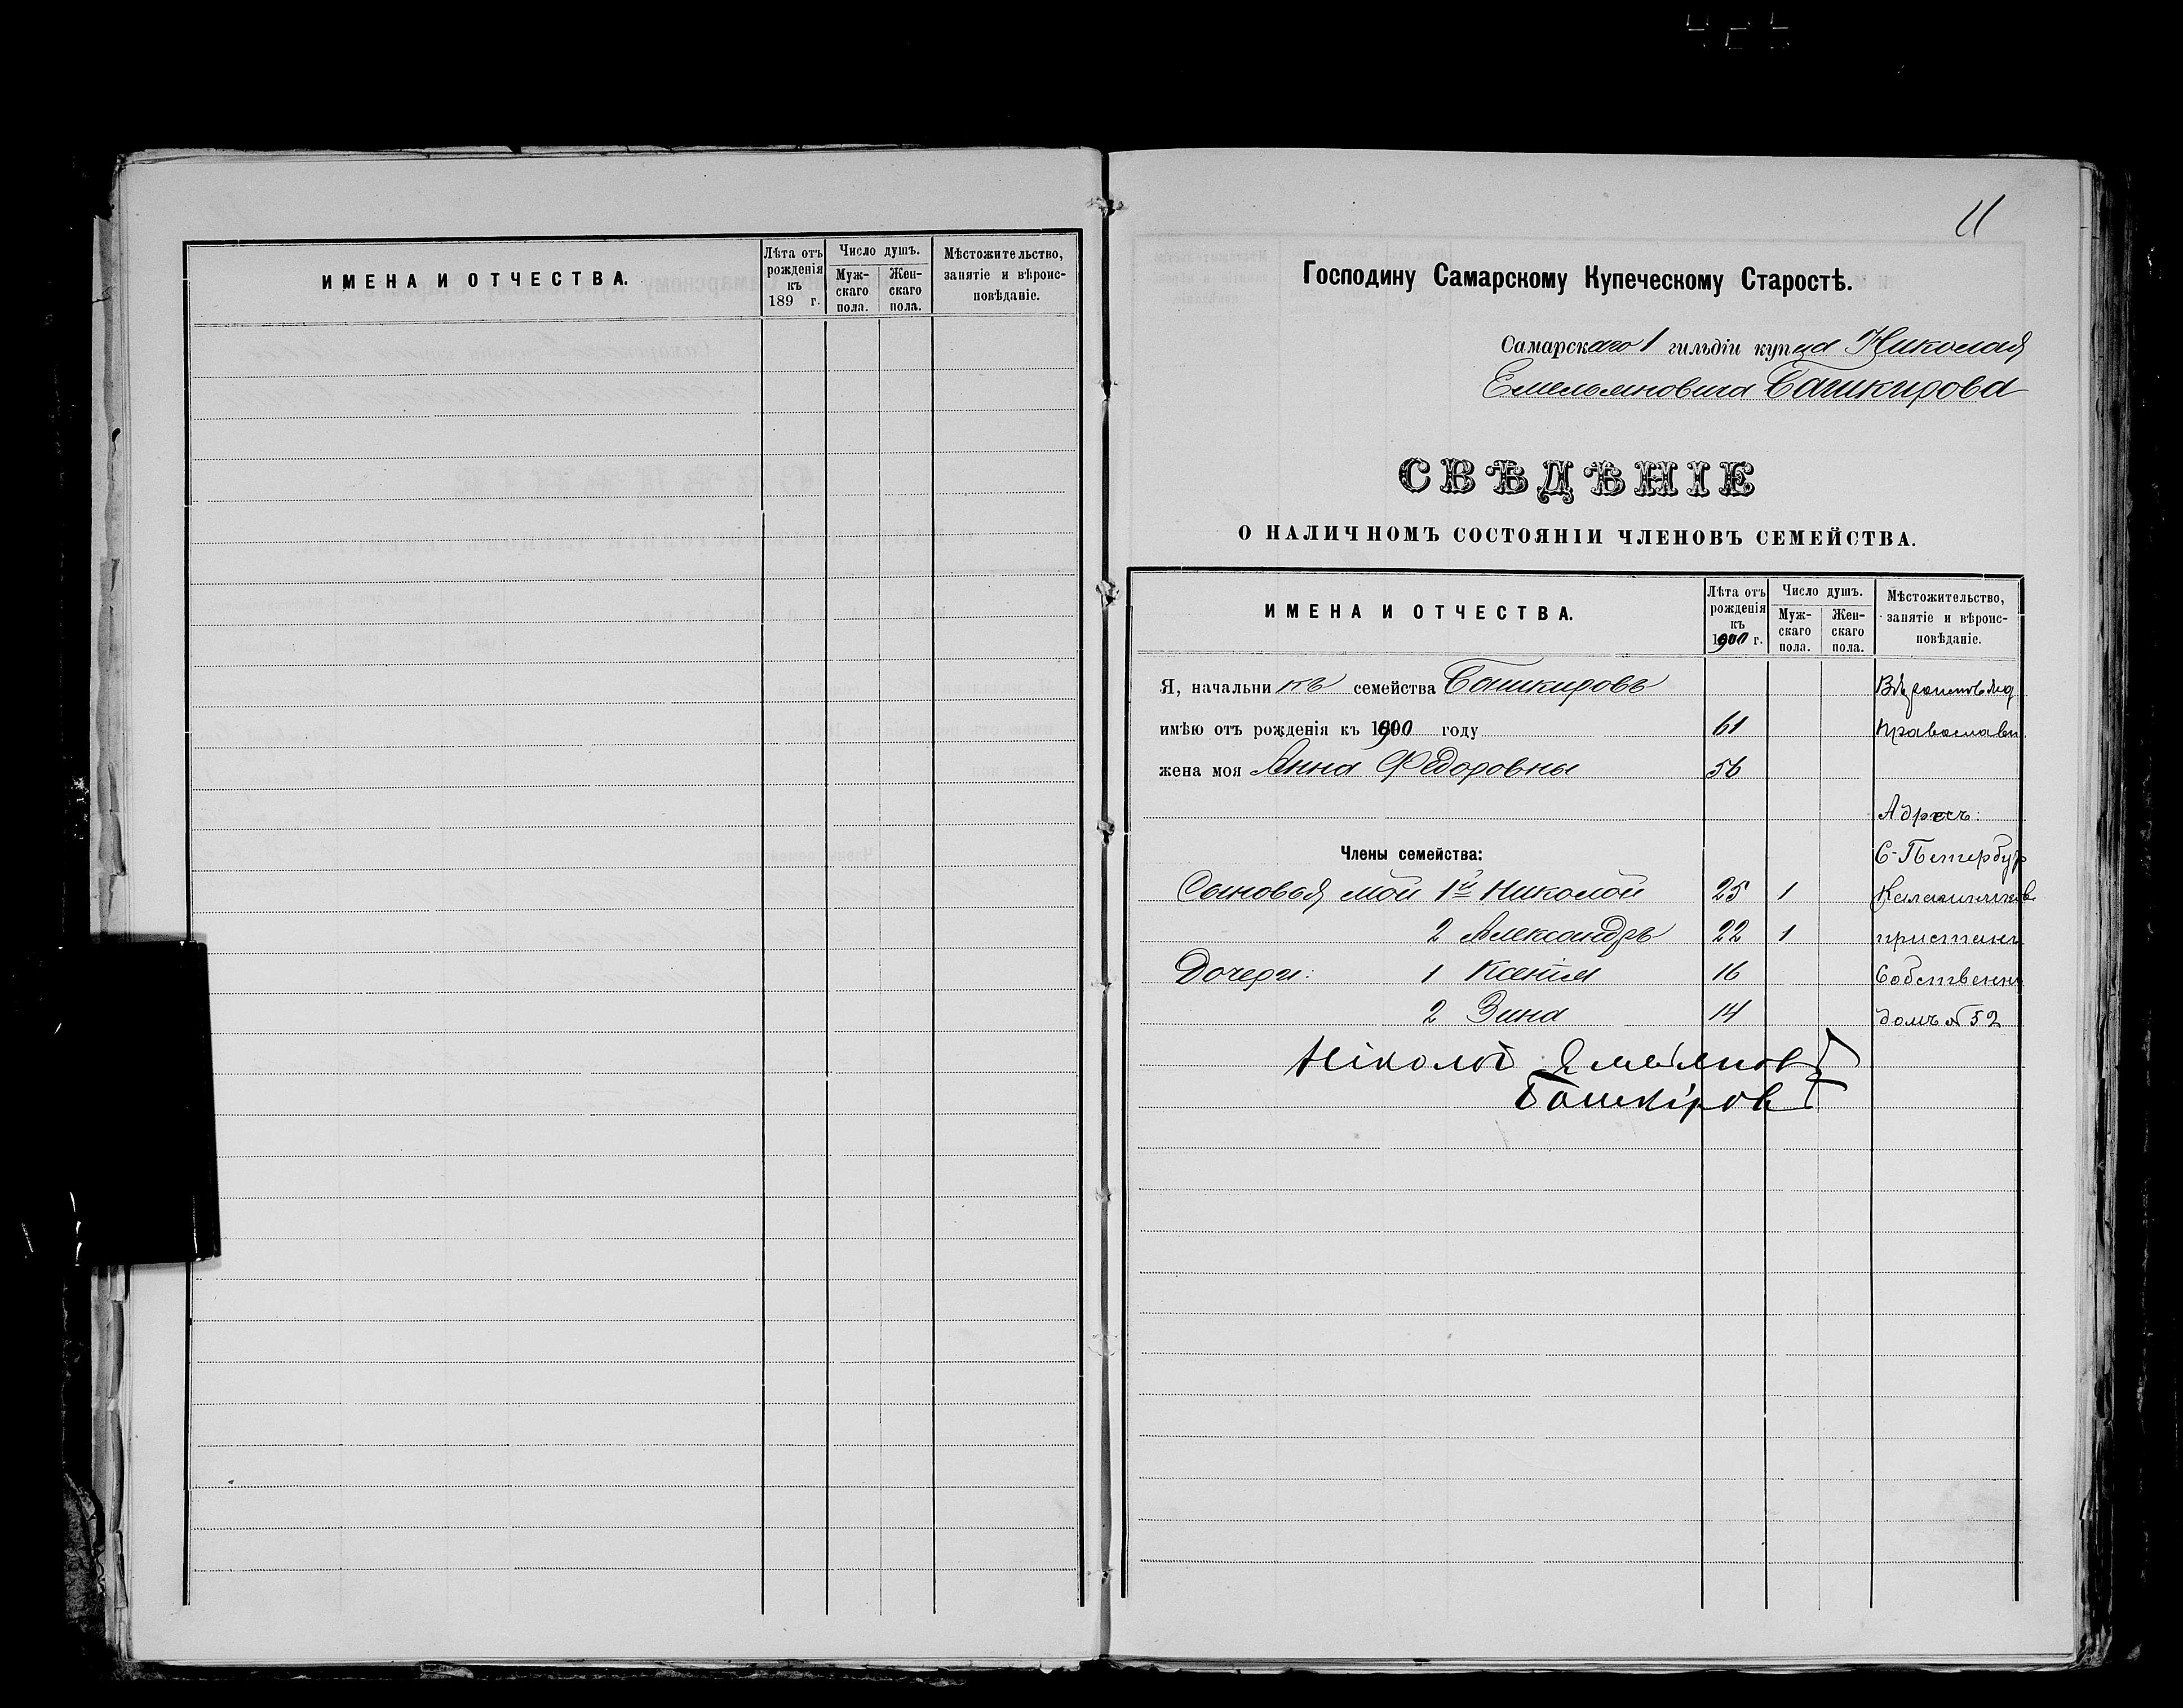 ИМЕНА И ОТЧЕСТВА.
Лѣта отъ рожденія къ 189 г.
Число душъ.
Мужскаго пола.
Женскаго пола.
Мѣстожительство, занятіе и вѣроисповѣданіе.
11
Господину Самарскому Купеческому Старостѣ.
Самарскаго 1 гильдіи купца Николая
Емельяновича Башкирова
СВѢДѢНІЕ
О НАЛИЧНОМЪ СОСТОЯНІИ ЧЛЕНОВЪ СЕМЕЙСТВА.
ИМЕНА И ОТЧЕСТВА.
Лѣта отъ рожденія къ 1900 г.
Число душъ.
Мужскаго пола.
Женскаго пола.
Мѣстожительство, занятіе и вѣроисповѣданіе.
Я, начальникъ семейства Башкировъ Вѣроисповѣд
имѣю отъ рожденія къ 1900 году 61 Православн
жена моя Анна Федоровны 56
Адресъ:
Члены семейства: С-Петербур
Сыновья мои 1й Николай 25 1 Калашников
2 Александръ 22 1 пристань
Дочери: 1 Ксенія 16 Собственн
2 Зина 14 домъ № 52
Ніколой Емельянов
Башкіров